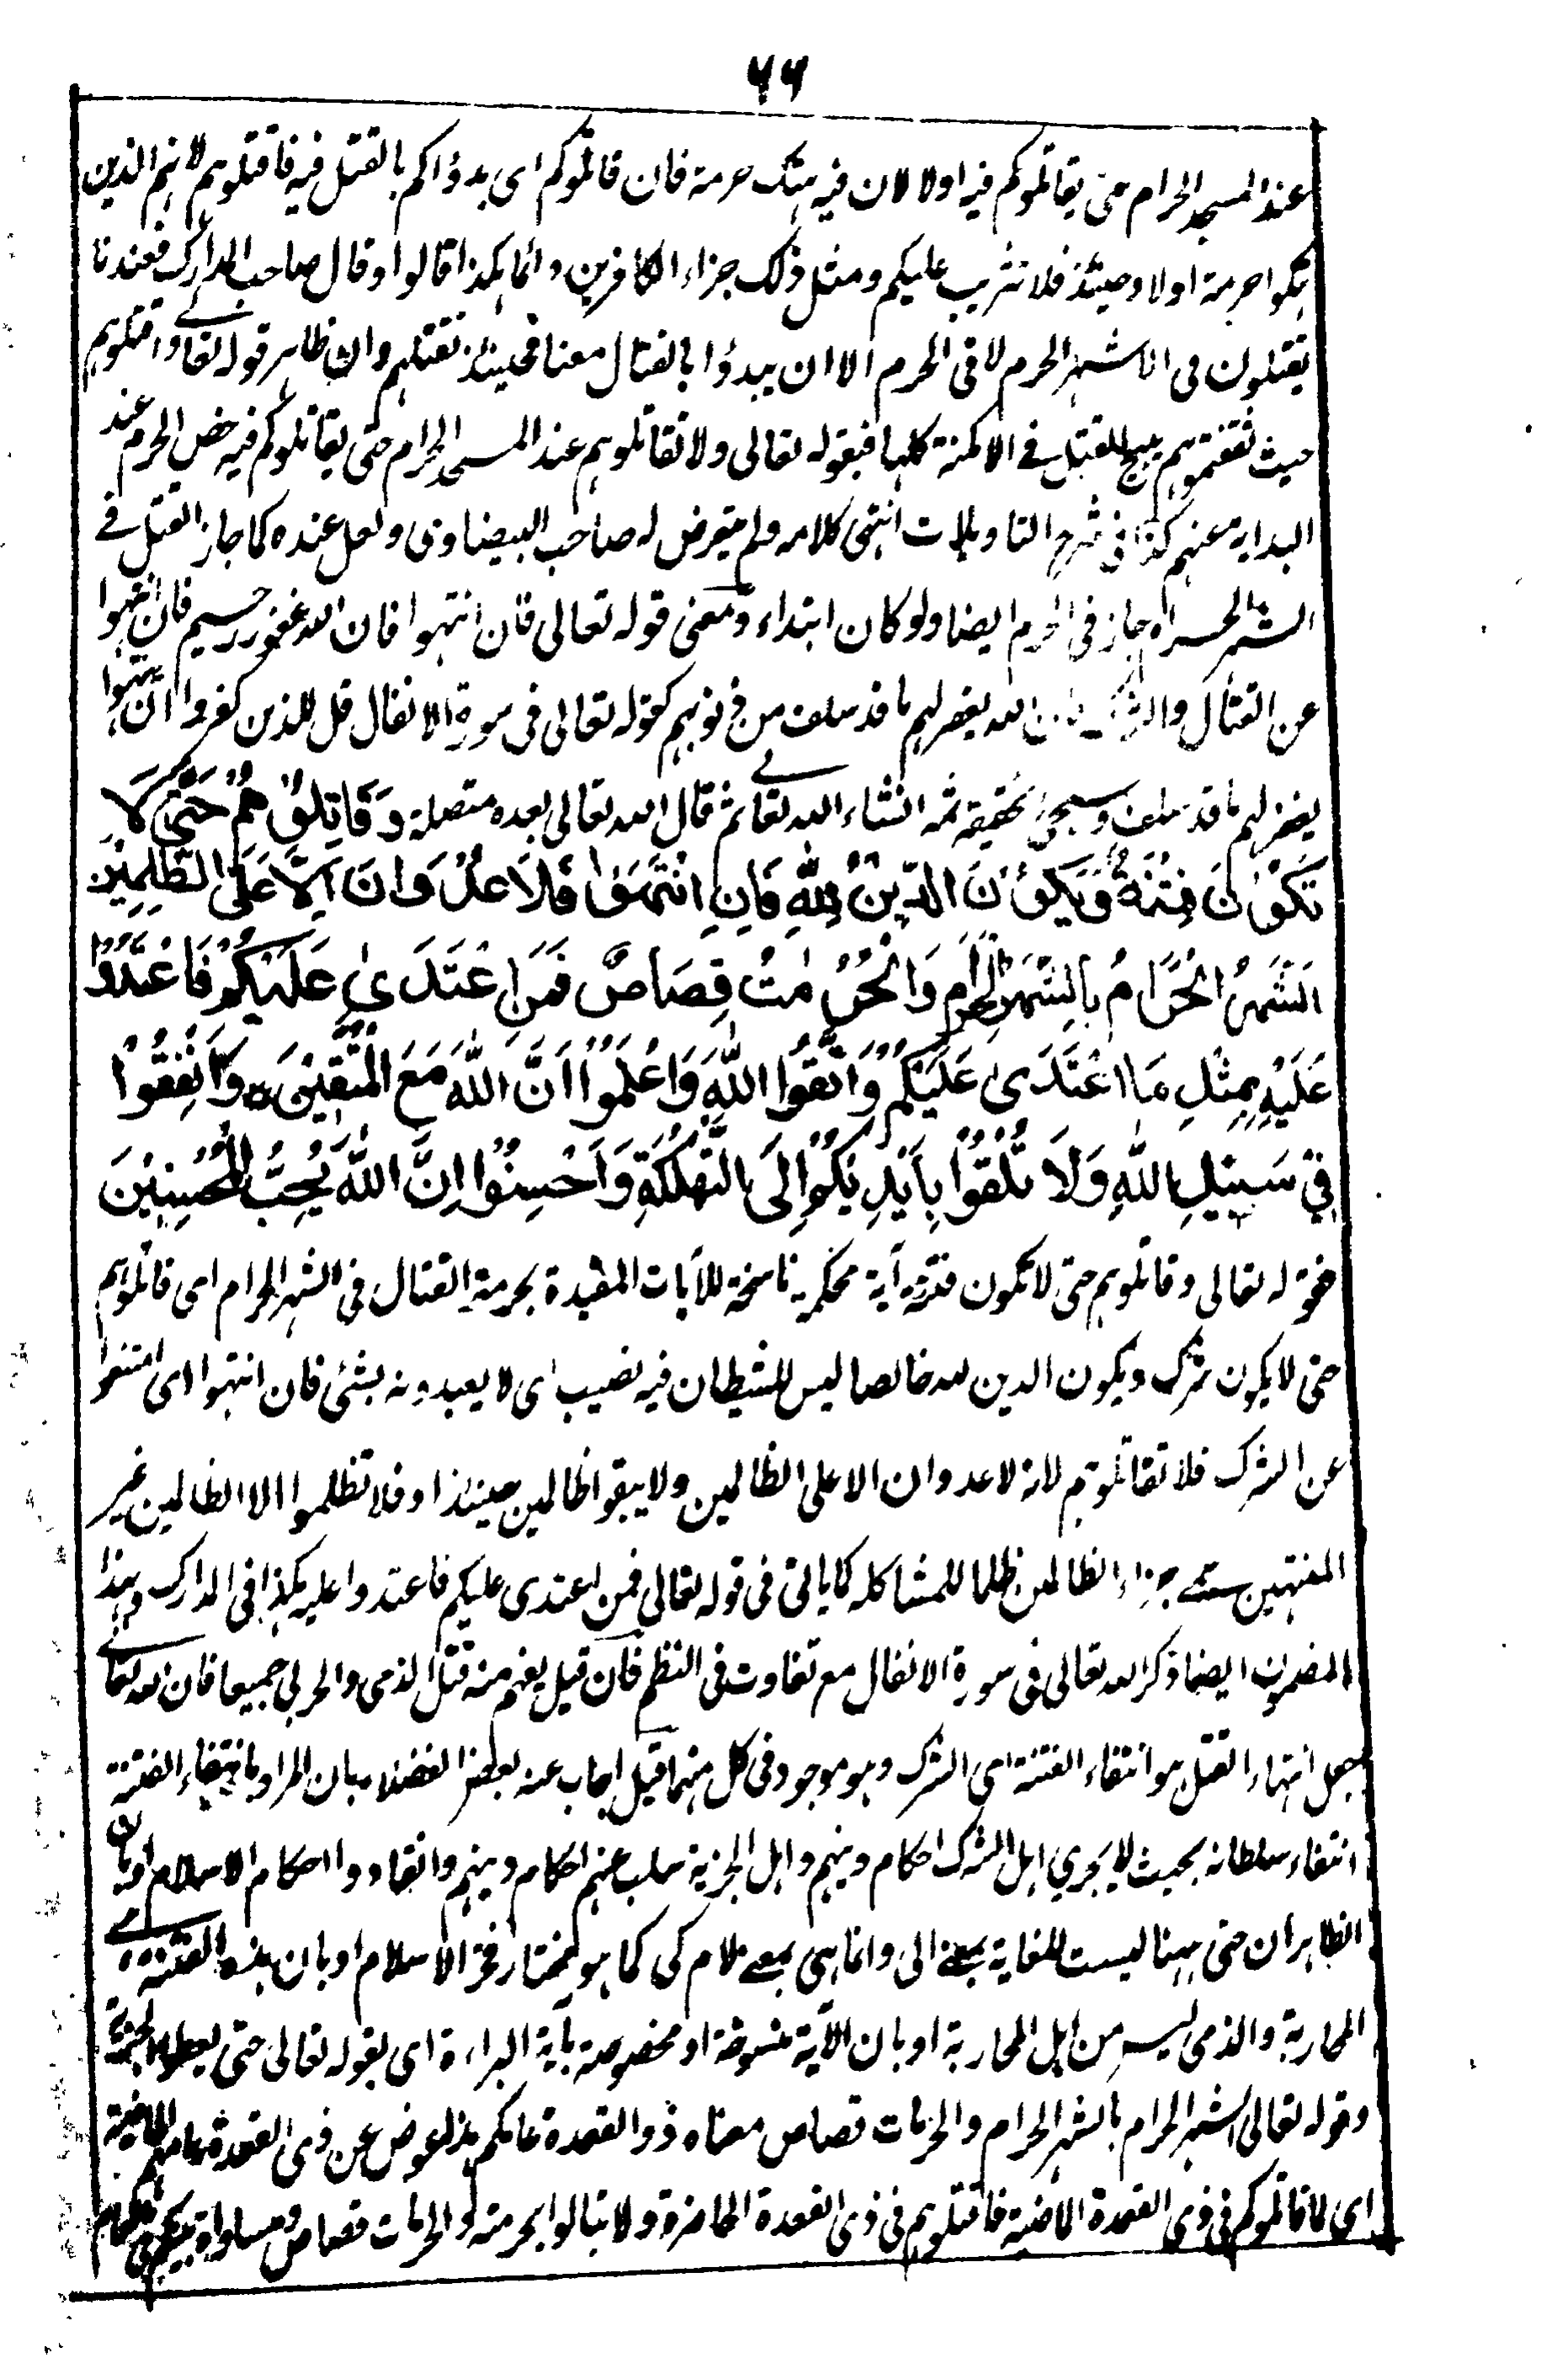 ٦٦
عند المسجد الحرام حتى يقاتلوكم فيه اولا لان فيه هتك حرمة فان قاتلوكم اى بدؤاكم بالقتل فيه فاقتلوهم لانهم الذين
هتكوا حرمة اولا وحينئذ فلا تثريب عليكم ومثل ذلك جزاء الكافرين دائما هكذا قالوا وقال صاحب المدارك فعندنا
يقتلون فى الاشهر الحرم لا فى الحرم الا ان يبدؤا بالقتال معنا فحينئذ نقتلهم وان ظاهر قوله تعالى واقتلوهم
حيث ثقفتموهم يبيح القتل فى الامكنة كلها فبقوله تعالى ولا تقاتلوهم عند المسجد الحرام حتى يقاتلوكم فيه خص الحرم عند
البداية منهم كذا فى شرح التاويلات انتهى كلامه ولم يتعرض له صاحب البيضاوى ولعل عنده كما جاز القتل فى
الشهر الحرام جاز فى الحرم ايضا ولو كان ابتداء ومعنى قوله تعالى فان انتهوا فان الله غفور رحيم فان انتهوا
عن القتال والشرك فان الله يغفر لهم ما قد سلف من ذنوبهم كقوله تعالى فى سورة الانفال قل للذين كفروا ان ينتهوا
يغفر لهم ما قد سلف وسيجئ تحقيقه ثمه انشاء الله تعالى ثم قال الله تعالى بعده متصلة وَقَاتِلُوْهُمْ حَتّٰى لَا
تَكُوْنَ فِتْنَةٌ وَّيَكُوْنَ الدِّيْنُ لِلّٰهِ فَاِنِ انْتَهَوْا فَلَا عُدْوَانَ اِلَّا عَلَى الظّٰلِمِيْنَ
اَلشَّهْرُ الْحَرَامُ بِالشَّهْرِ الْحَرَامِ وَالْحُرُمٰتُ قِصَاصٌ فَمَنِ اعْتَدٰى عَلَيْكُمْ فَاعْتَدُوْا
عَلَيْهِ بِمِثْلِ مَا اعْتَدٰى عَلَيْكُمْ وَاتَّقُوا اللّٰهَ وَاعْلَمُوْا اَنَّ اللّٰهَ مَعَ الْمُتَّقِيْنَ وَاَنْفِقُوْا
فِيْ سَبِيْلِ اللّٰهِ وَلَا تُلْقُوْا بِاَيْدِيْكُمْ اِلَى التَّهْلُكَةِ وَاَحْسِنُوْا اِنَّ اللّٰهَ يُحِبُّ الْمُحْسِنِيْنَ
فقوله تعالى وقاتلوهم حتى لا تكون فتنة آية محكمة ناسخة للآيات المقيدة بحرمة القتال فى الشهر الحرام اى قاتلوهم
حتى لا يكون شرك ويكون الدين لله خالصا ليس للشيطان فيه نصيب اى لا يعبد دونه بشئ فان انتهوا اى امتنعوا
عن الشرك فلا تقاتلوهم لانه لا عدوان الا على الظالمين ولا يبقوا ظالمين حينئذ او فلا تظلموا الا الظالمين غير
المنتهين سمى جزاء الظالمين ظلما للمشاكلة كما ياتى فى قوله تعالى فمن اعتدى عليكم فاعتدوا عليه هكذا فى المدارك وهذا
المضمون ايضا ذكر الله تعالى فى سورة الانفال مع تفاوت فى النظم فان قيل يفهم منه قتل الذمى والحربى جميعا فان الله تعالى
جعل انتهاء القتل هو انتفاء الفتنة اى الشرك وهو موجود فى كل منهما قيل اجاب عنه بعض الفضلاء بان المراد بانتفاء الفتنة
انتفاء سلطانه بحيث لا يجرى اهل الشرك احكام دينهم واهل الجزية سلب عنهم احكام دينهم وانقادوا احكام الاسلام او بان
الظاهر ان حتى ههنا ليست للغاية بمعنى الى وانما هى بمعنى لام كى كما هو مختار فخر الاسلام او بان هذه الفتنة
المحاربة والذمى ليس من اهل المحاربة او بان الآية منسوخة او مخصوصة بآية البراءة اى بقوله تعالى حتى يعطوا الجزية
وقوله تعالى الشهر الحرام بالشهر الحرام والحرمات قصاص معناه ذو القعدة عامكم هذا عوض عن ذى القعدة عامهم الماضية
اى لما قاتلوكم فى ذى القعدة الماضية فاقتلوهم فى ذى القعدة الحاضرة ولا تبالوا بحرمته والحرمات قصاص ومساواة